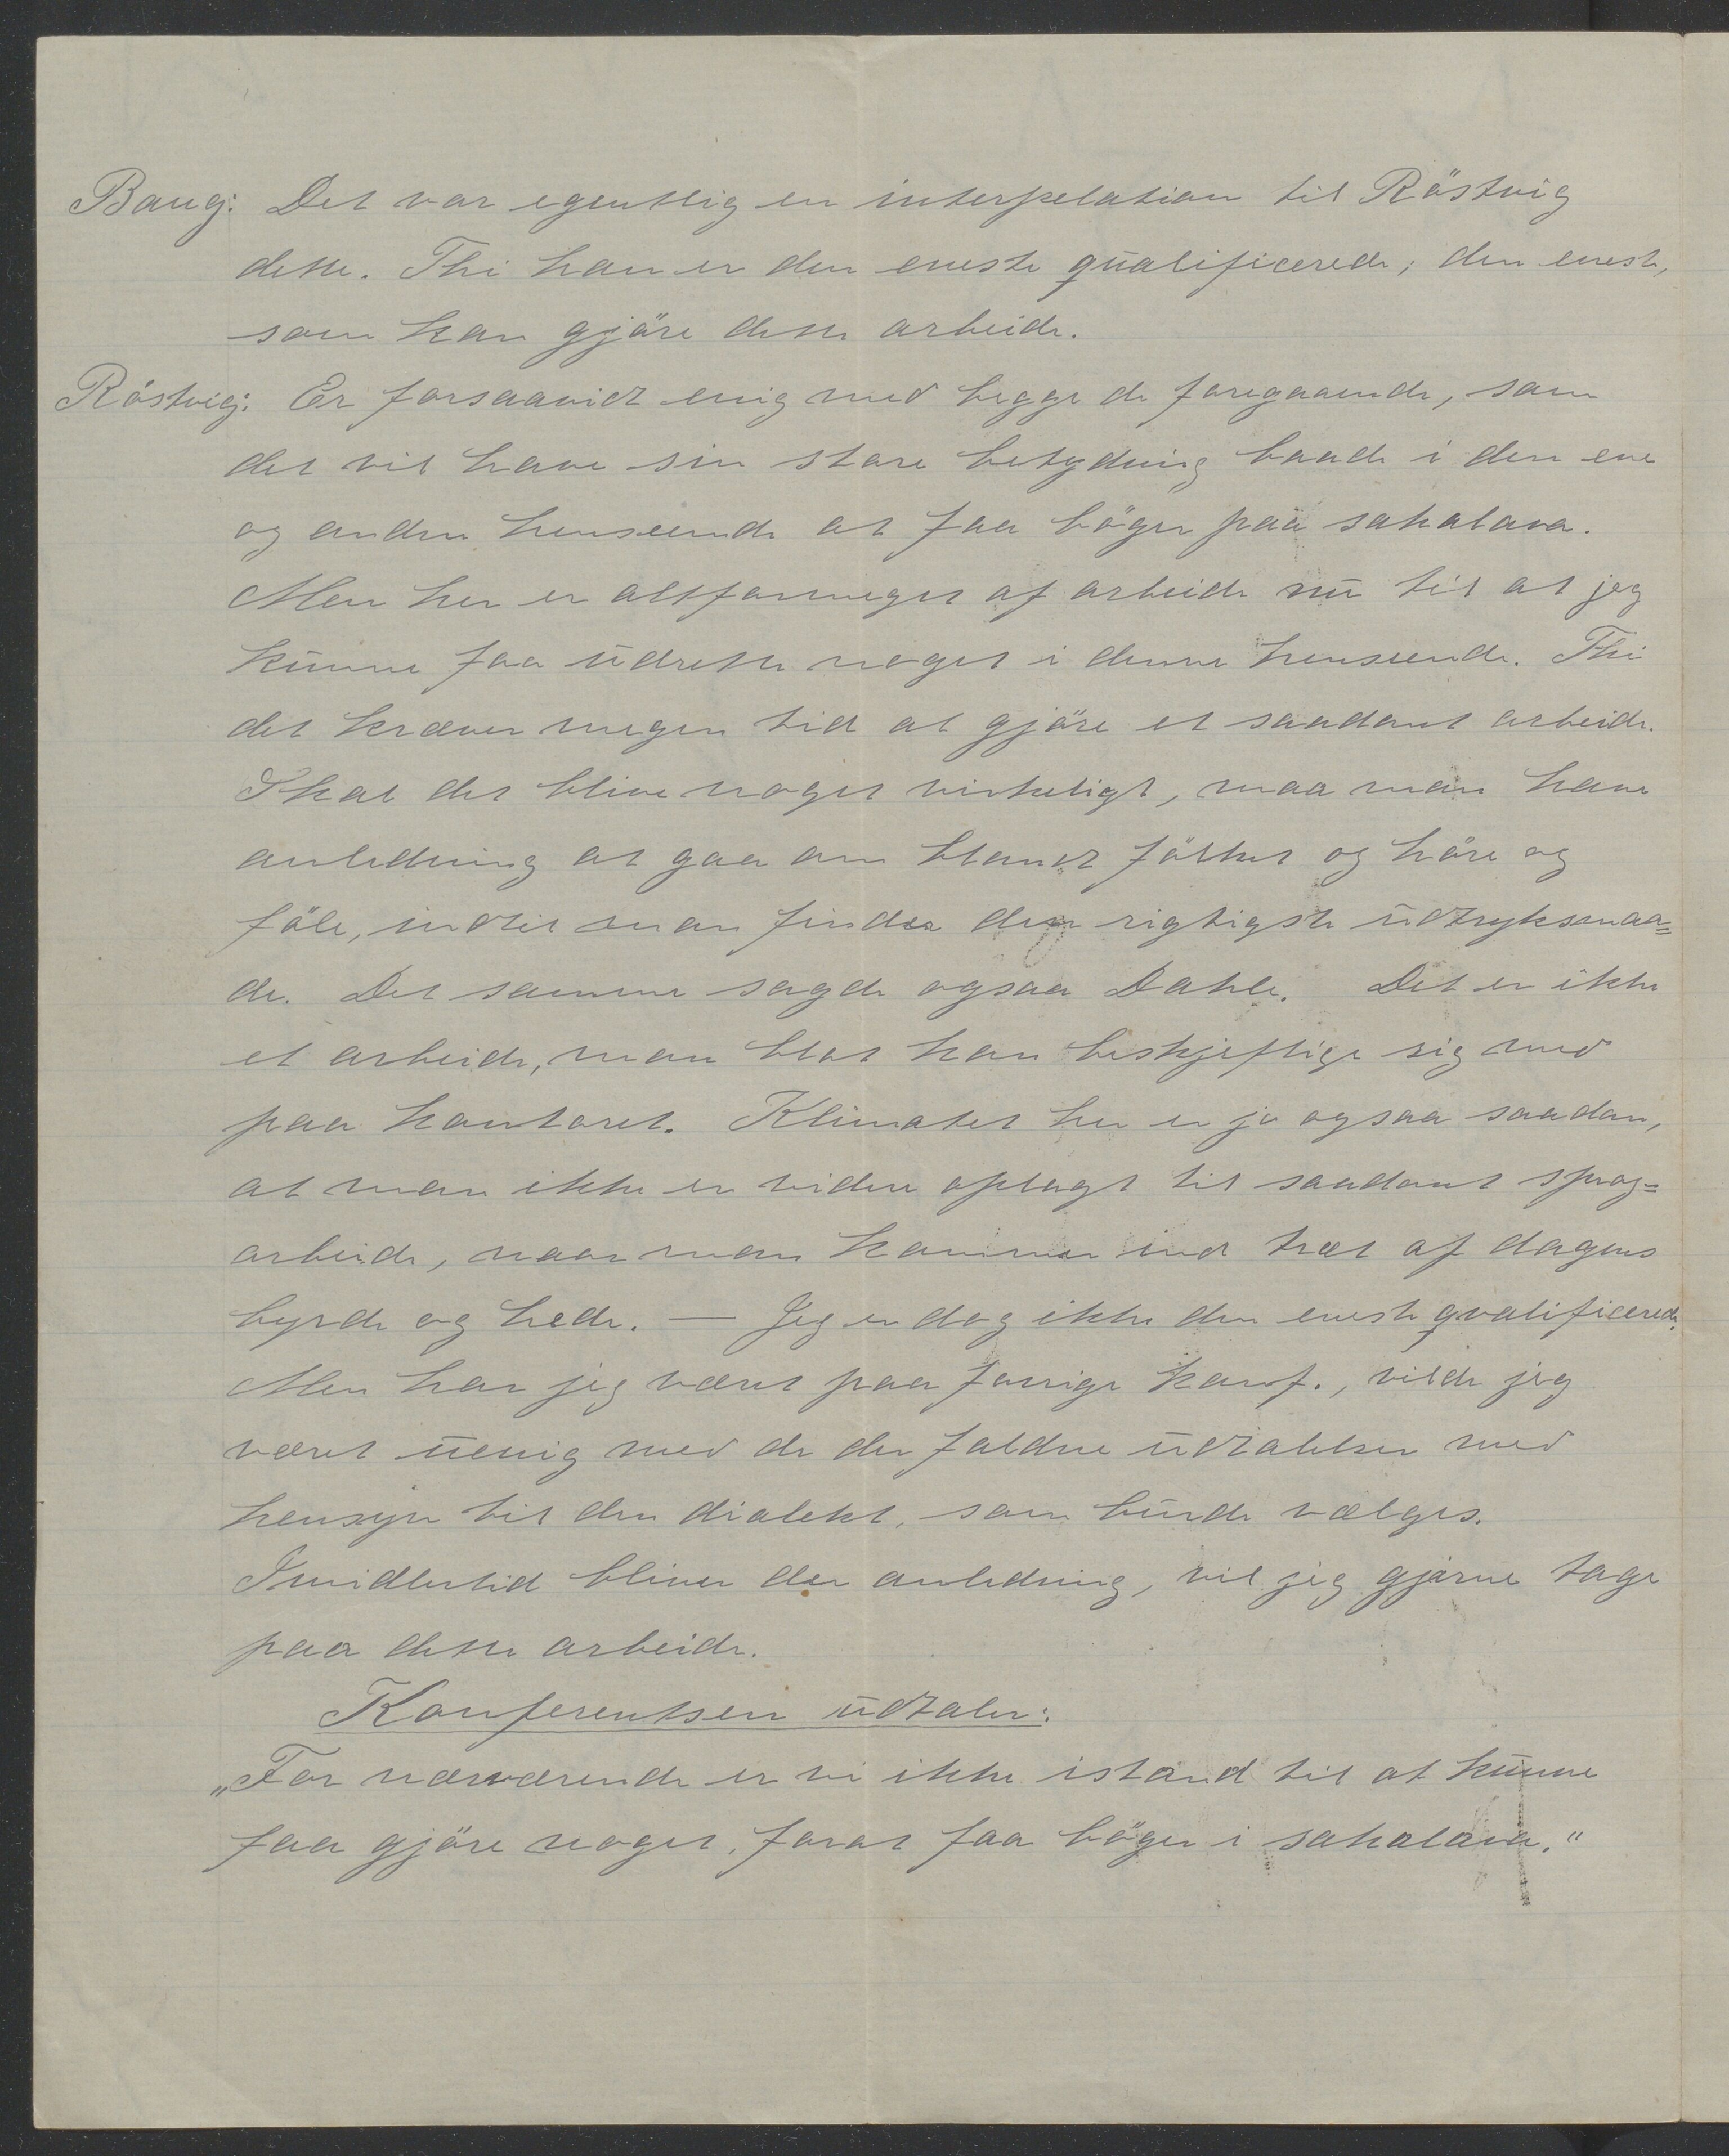 Bang: Det var egentlig en interpelation til Röstvig
dette. Thi han er den eneste qualificerede; den eneste,
som kan gjöre dette arbeide.
Röstvig: Er forsaavidt enig med begge de foregaaende, som
det vil have sin store betydning baade i den ene
og anden henseende at faa böger paa sakalava.
Men her er altformeget af arbeide nu til at jeg
kunne faa udrette noget i denne henseende. Thi
det kræver megen tid at gjöre et saadant arbeide.
Skal det blive noget virkeligt, maa man have
anledning at gaa om blandt folket og höre og
föle, indtil man finder den rigtigste udtryksmaa=
de. Det samme sagde ogsaa Dahle. Det er ikke
et arbeide, man blot kan beskjeftige sig med
paa kontoret. Klimatet her er jo ogsaa saadan,
at man ikke er videre oplagt til saadant sprog=
arbeide, naar man kommer ind træt af dagens
byrde og hede. — Jeg er dog ikke den eneste qvalificerede.
Men har jeg været paa forrige konf., vilde jeg
været uenig med de der faldne udtalelser med
hensyn til den dialekt, som burde vælges.
Imidlertid bliver der anledning, vil jeg gjerne tage
paa dette arbeide.
Konferentsen udtaler:
„For nærværende er vi ikke istand til at kunne
faa gjöre noget, forat faa böger i sakalava."